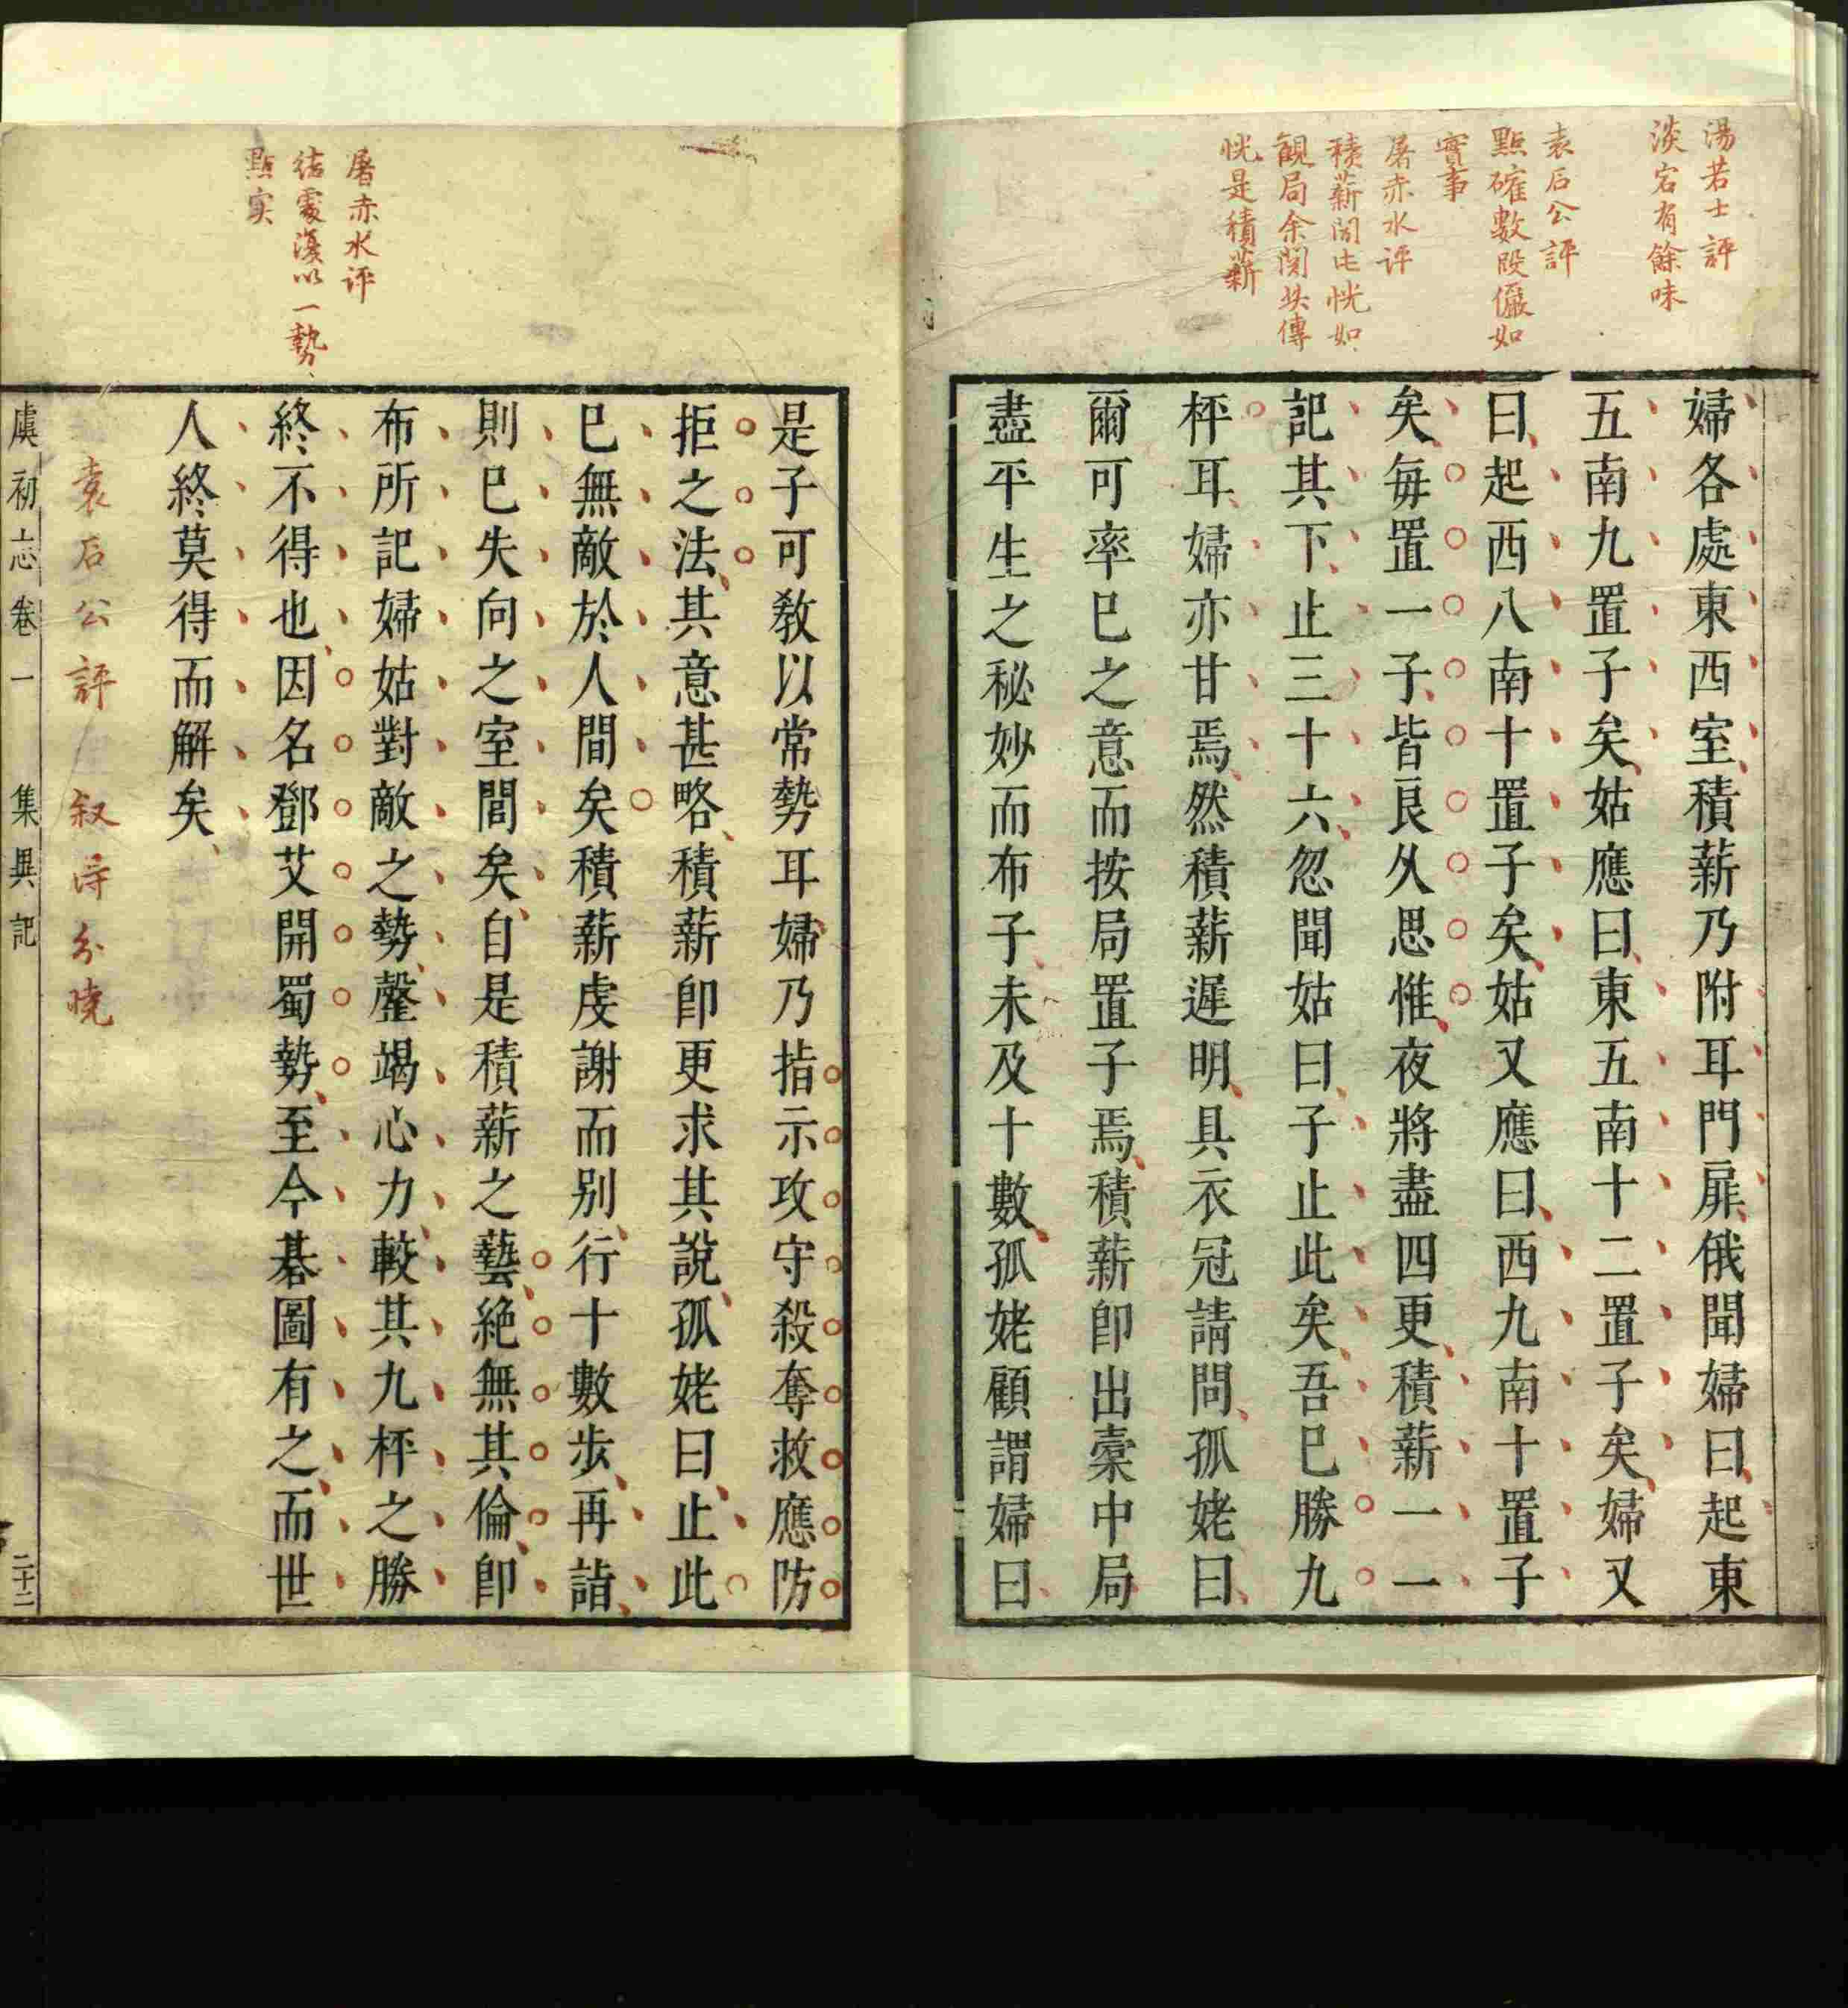 湯若士評
淡宕有餘味
袁石公評
點確數段儼如
實事
屠赤水評
積薪聞此恍如
觀局余閱此傳
恍是積薪
婦各處東西室積薪乃附耳門扉俄聞婦曰起東
五南九置子矣姑應曰東五南十二置子矣婦又
曰起西八南十置子矣姑又應曰西九南十置子
矣每置一子皆良久思惟夜將盡四更積薪一一
記其下止三十六忽聞姑曰子止此矣吾已勝九
枰耳婦亦甘焉然積薪遲明具衣冠請問孤姥曰
爾可率已之意而按局置子焉積薪卽出橐中局
盡平生之秘妙而布子未及十數孤姥顧謂婦曰
屠赤水評
結處復以一勢
點实
是子可教以常勢耳婦乃指示攻守殺奪救應防
拒之法其意甚略積薪卽更求其說孤姥曰止此
已無敵於人間矣積薪虔謝而别行十數步再詣
則已失向之室間矣自是積薪之藝絶無其倫卽
布所記婦姑對敵之勢罄竭心力較其九枰之勝
終不得也因名鄧艾開蜀勢至今棊圖有之而世
人終莫得而解矣
袁石公評 叙得分曉
虞初志卷一 集異記 二十二